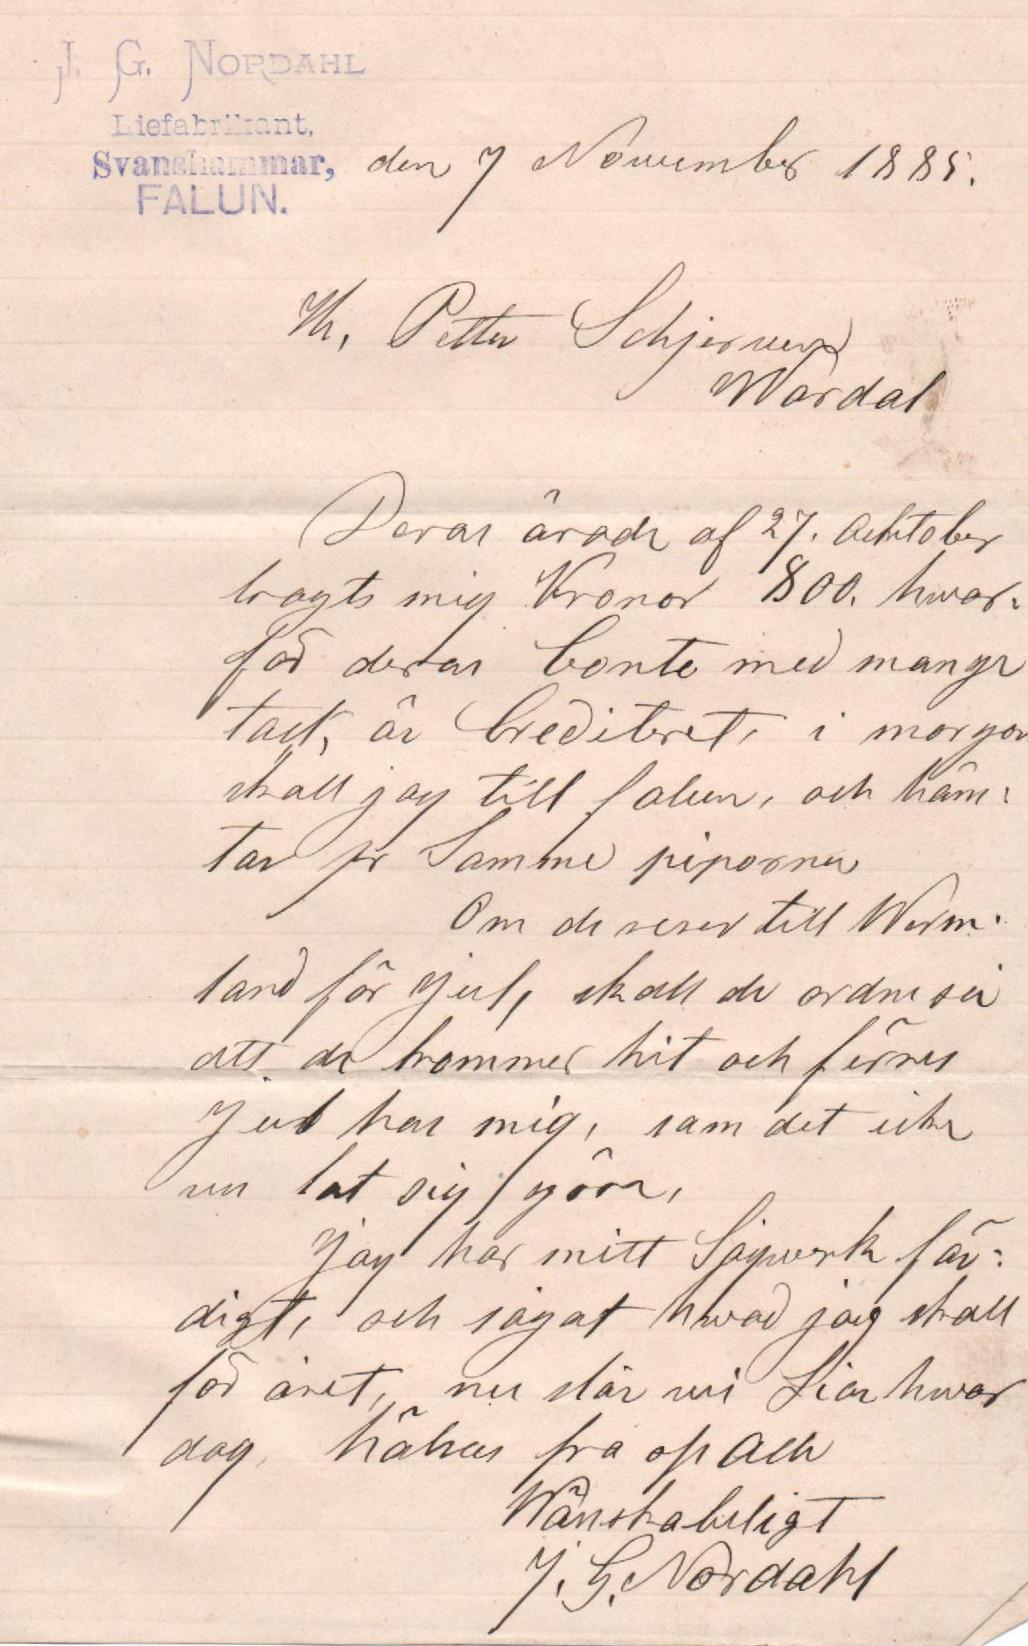 J. G. NORDAHL
Liefabrikant,
Svanshammar,
FALUN.
den 7 November 1885.
Hr. Petter Schjerwen
Wärdal
Deras ärade af 27. Acktober
bragts mig Kronor 800. hwar-
för deras Conto med mange
tack, är Crediteret, i morgon
skall jag till falun, och häm-
tar pr Samme piporna
Om de reser till Werm-
land för Jul, skall de ordne sei
att de kommer hit och firner
Jul has mig, sam det icke
nu lat sig göra,
Jag har mitt Sågwerk fär-
digt, och sågat hwad jag skall
för året, nu slår wi Liar hwar
dag, hälsas fra os ach
Wänskabeligt
J. G. Nordahl